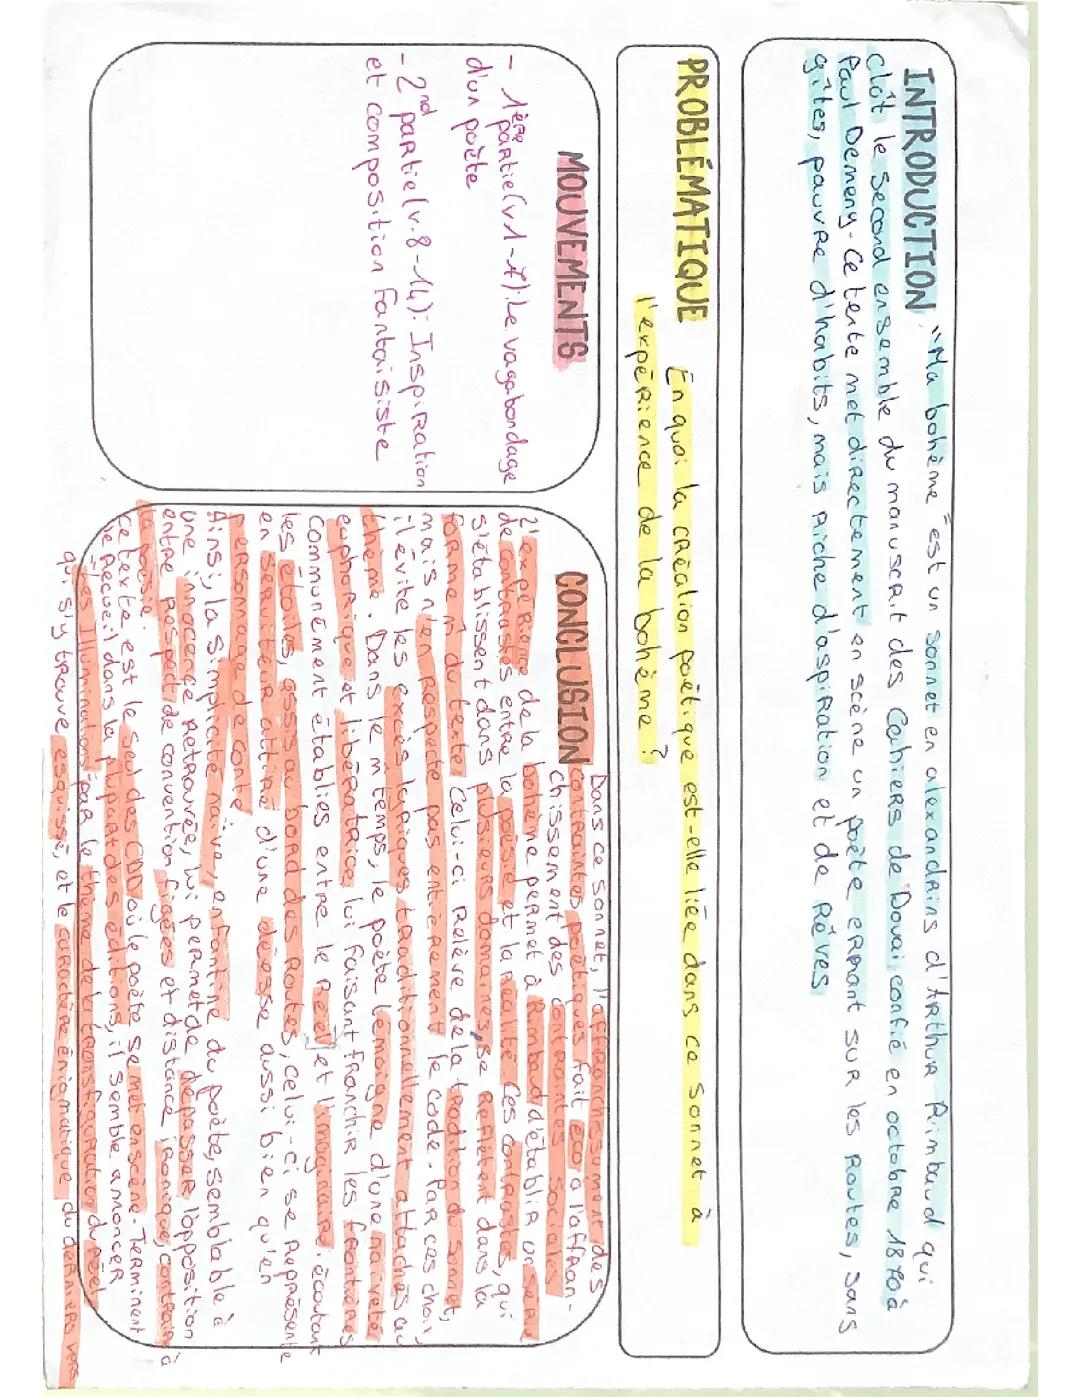 INTRODUCTION "Ma bohème" est un sonnet en alexandrins d'Arthur Rimbaud qui
clôt le second ensemble du manuscrit des Cahiers de Douai, confié en octobre 1870 à
Paul Demeny. Ce texte met directement en scène un poète errant sur les routes, sans
gîtes, pauvre d'habits, mais riche d'aspiration et de Rêves
PROBLÉMATIQUE En quoi la création poétique est-elle liée dans ce sonnet à
l'expérience de la bohème ?
MOUVEMENTS
- 1ère partie (v1-7): Le vagabondage
d'un poète
- 2nd partie (v.8-14): Inspiration
et composition fantaisiste
CONCLUSION Dans ce sonnet, l'affranchissement des
contraintes poétiques fait éco à l'affran-
chissement des contraintes sociales
L'expérience de la bohème permet à Rimbaud d'établir une série
de contrastes entre la poésie et la réalité. Ces contrastes, qui
s'établissent dans plusieurs domaines, se reflètent dans la
forme m̂ du texte. Celui-ci relève de la tradition du sonnet,
mais n'en respecte pas entièrement le code. Par ces choix,
il évite les excès lyriques traditionnellement attachés au
thème. Dans le m̂ temps, le poète témoigne d'une naïveté
euphorique et libératrice lui faisant franchir les frontières
communément établies entre le Réel et l'imaginaire. écoutant
les étoiles, assis au bord des routes, celui-ci se représente
en serviteur attitré d'une déesse aussi bien qu'en
personnage de conte
Ainsi, la simplicité naïve, enfantine du poète, semblable à
une innocence retrouvée, lui permet de dépasser l'opposition
entre respect de convention figées et distance ironique, contraire à
la poésie.
Ce texte est le seul des CDD où le poète se met en scène. Terminent
le Recueil dans la plupart des éditions, il semble annoncer
"les Illuminations" par le thème de la transfiguration du réel
qui s'y trouve esquissé, et le caractère énigmatique du derniers vers